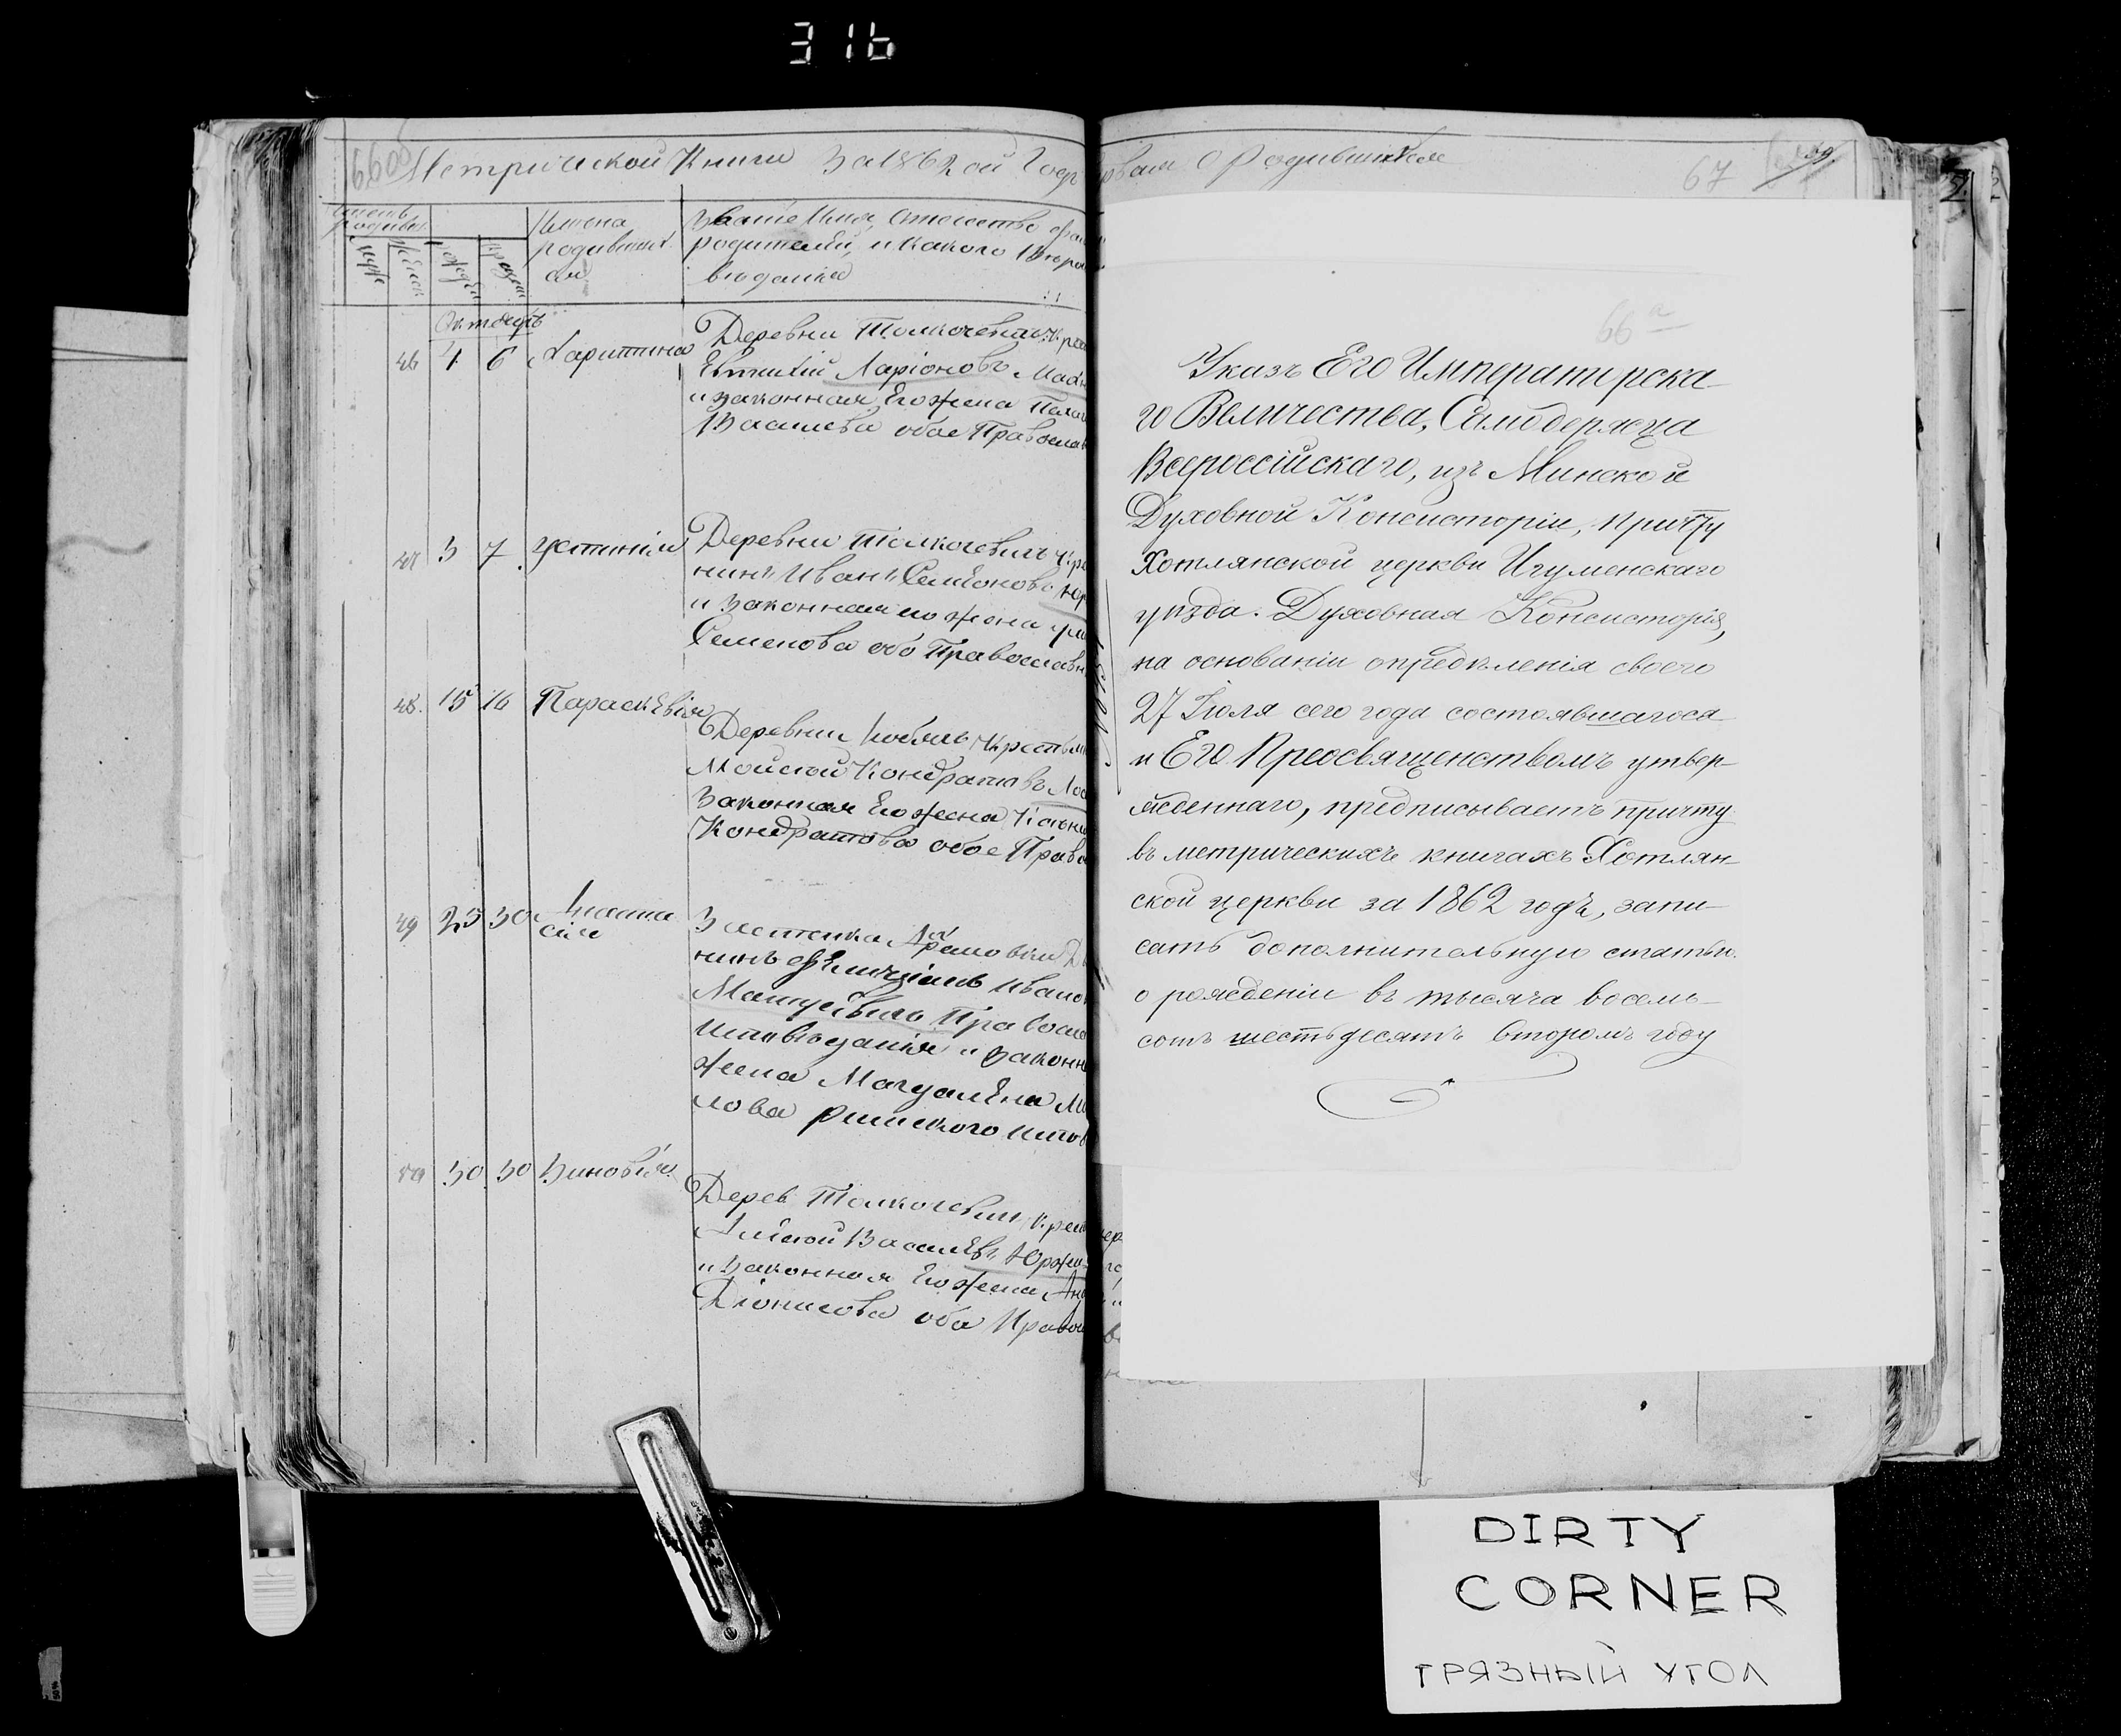 316
Метрической Книги За 1862 ой Годъ
О Родившихся
67
Имена
родивших
ся
Звание Имя, Отчество
родителей, и какого
Октябрь
46 4 6 Харитина
Деревни Толкочевичъ
Евтихій Ларіоновъ
и законная Его жена
Василева обое Правосла
47 3 7 Устинія
Деревни Толкочевичъ
нинъ Иванъ Семёоновъ
и Законная его жена
Семенова обо Православн
48. 15 16 Параскевія
Деревни
Мойсей Кондратовъ
Законная Его жена
Кондратова обое Право
49 25 30 Анаста
сія
Застенка
нинъ Иванов
Матуевичъ Правосла
Исповѣданія и Законн
жена Магдалена
лова римского испов
50 30 30 Зиновія
Дерев Толкочевич
Алисей Василевъ
и Законная Его жена
Діонисова оба Право
66 а
Указъ Его Императорска-
го Величества, Самодержца
Всероссійскаго, изъ Минской
Духовной Консисторіи, Причту
Хотлянской церкви Игуменскаго
уѣзда. Духовная Консисторія,
на основаніи опредѣленія своего
27 Іюля сего года состоявшагося
и Его Преосвященствомъ утвер-
жденнаго, предписываетъ причту
въ метрическихъ книгахъ Хотлян-
ской церкви за 1862 годъ, запи-
сать дополнительную статью
о рожденіи въ тысяча восемь-
сотъ шестьдесятъ второмъ году
DIRTY
CORNER
ГРЯЗНЫЙ УГОЛ